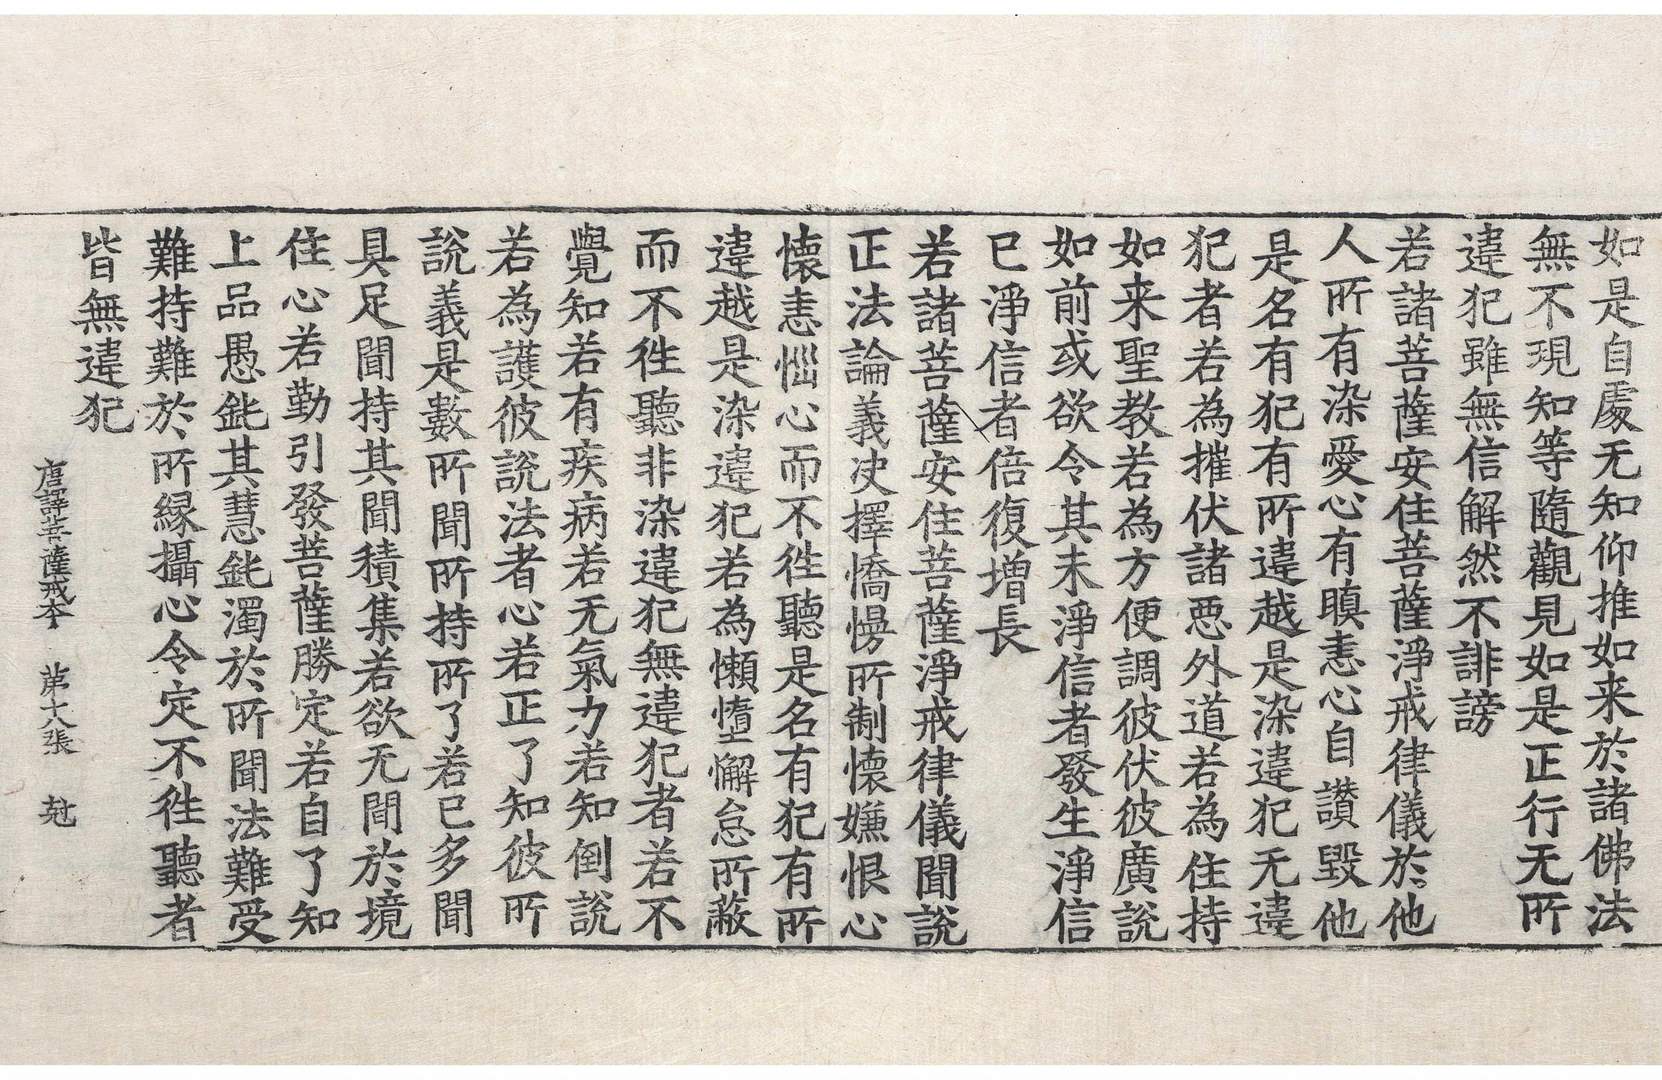 如是自處无知仰推如来於諸佛法
無不現知等隨觀見如是正行无所
違犯雖無信解然不誹謗
若諸菩薩安住菩薩淨戒律儀於他
人所有染愛心有瞋恚心自讃毀他
是名有犯有所違越是染違犯无違
犯者若為摧伏諸惡外道若為住持
如来聖教若為方便調彼伏彼廣說
如前或欲令其未淨信者發生淨信
已淨信者倍復增長
若諸菩薩安住菩薩淨戒律儀聞說
正法論義決擇憍慢所制懷嫌恨心
懷恚惱心而不徃聽是名有犯有所
違越是染違犯若為懶墮懈怠所蔽
而不徃聽非染違犯無違犯者若不
覺知若有疾病若无氣力若知倒說
若為護彼說法者心若正了知彼所
說義是數所聞所持所了若已多聞
具足聞持其聞積集若欲无間於境
住心若勤引發菩薩勝定若自了知
上品愚鈍其慧鈍濁於所聞法難受
難持難於所緣攝心令定不徃聽者
皆無違犯
唐譯菩薩戒本 苐十八張 尅